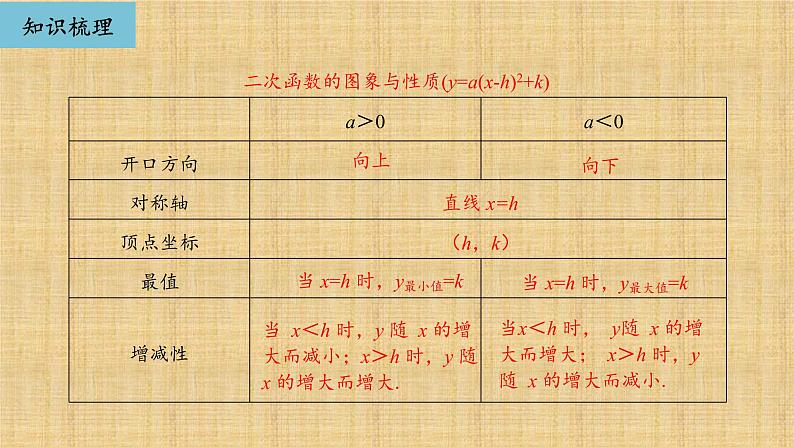 知识梳理
二次函数的图象与性质(y=a(x-h)²+k)
a＞0 a＜0
开口方向 向上 向下
对称轴 直线 x=h
顶点坐标 （h，k）
最值 当 x=h 时，y最小值=k 当 x=h 时，y最大值=k
增减性
当 x＜h 时，y 随 x 的增
大而减小；x＞h 时，y 随
x 的增大而增大.
当x＜h 时， y随 x 的增
大而增大； x＞h 时，y
随 x 的增大而减小.